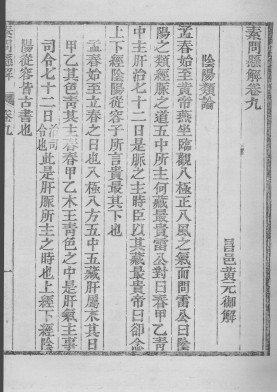 素問懸解卷九
昌邑黃元御解
陰陽類論
孟春始至黃帝燕坐臨觀八極正八風之氣而問雷公曰陰
陽之類經脈之道五中所主何藏最貴雷公對曰春甲乙青
中主肝治七十二日是脈之主時臣以其藏最貴帝曰卻念
上下經陰陽從容子所言貴最其下也
孟春始至立春之日也八極八方五中五藏肝屬木其日
甲乙其色青其主春春甲乙木王青色之中是肝氣主事
司令七十二日治司令也此是肝脈所主之時也上經下經陰
陽從容皆古書也
素問懸解 卷九